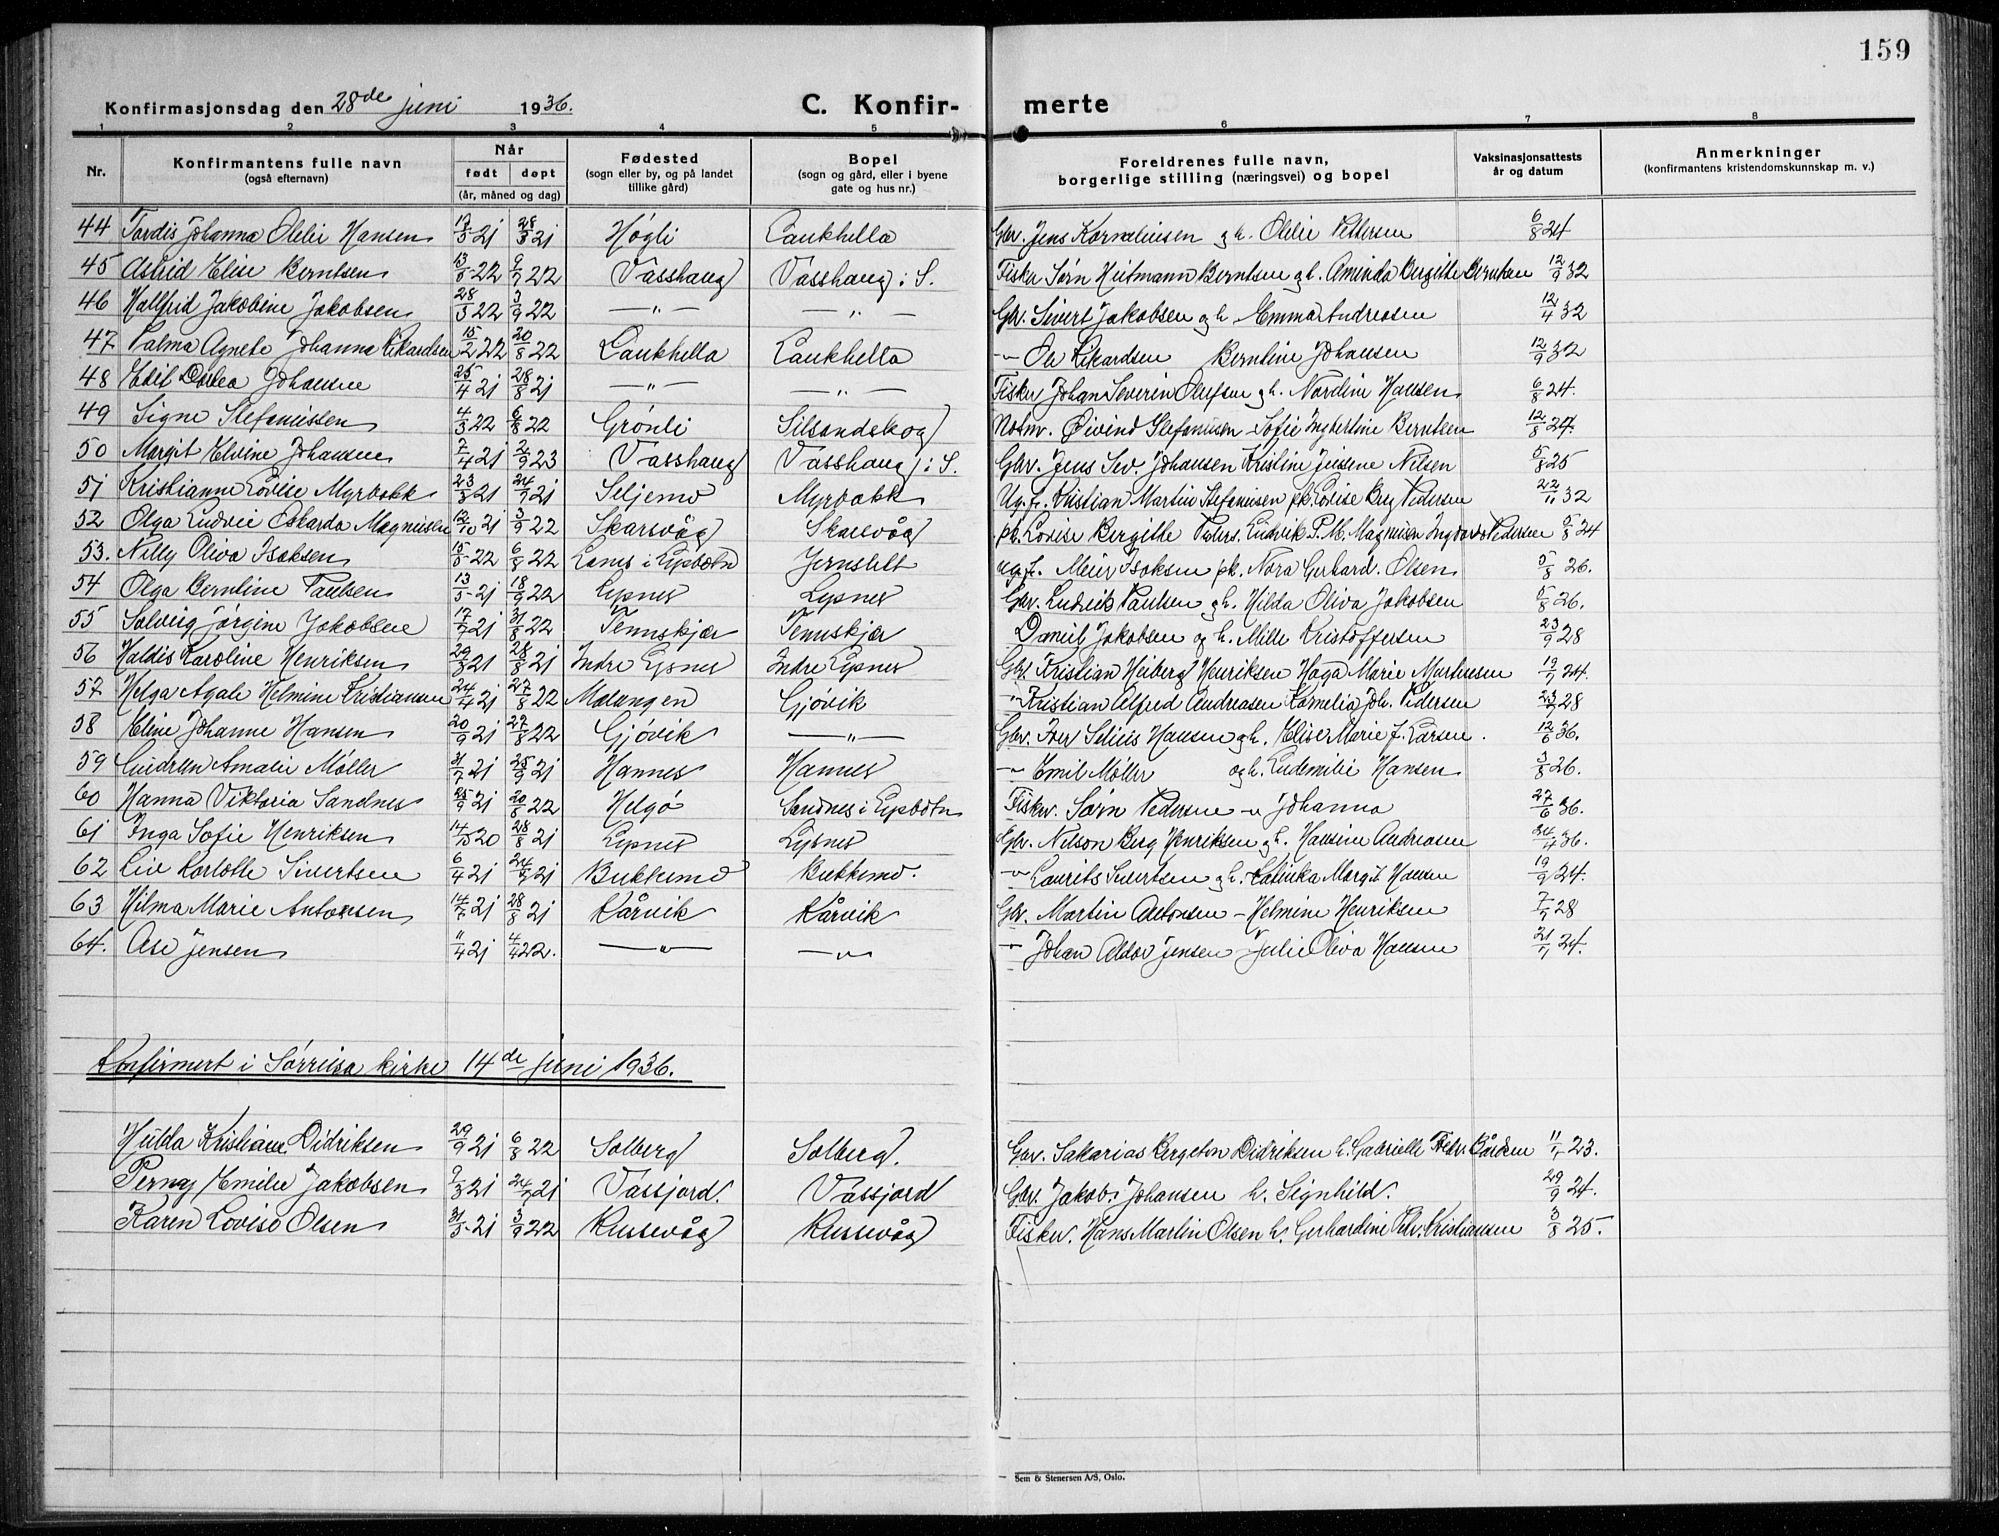 159
Konfirmasjonsdag den 28de juni 1936. C. Konfir- merte
1 2 3 4 5 6 7 8
Nr. Konfirmantens fulle navn (også efternavn) Når født døpt (år, måned og dag) Fødested (sogn eller by, og på landet tillike gård) Bopel (sogn og gård, eller i byene gate og hus nr.) Foreldrenes fulle navn, borgerlige stilling (næringsvei) og bopel Vaksinasjonsattests år og datum Anmerkninger (konfirmantens kristendomskunnskap m. v.)
44 Tordis Johanna Olelie Hansen 17/5-21 28/8 21 Høgli Laukhella Gbr. Jens Kornelius­en og h. Olelie Pettersen 6/8 24
45 Astrid Elise Berntsen 13/5-22 9/7 22 Vasshaug Vasshaug i S. Fisker Sørn Heitmann Berntsen og h. Aminda Bergitte Berntsen 12/9 32
46 Hallfrid Jakobine Jakobsen 28/3 22 3/9 22 —"— —"— Gbr. Sivert Jakobsen og h. Emma Andreasen 12/4 32
47 Valma Agnete Johanna Rikardsen 15/2 22 20/8 22 Laukhella Laukhella —"— Ole Rikardsen Berntine Johansen 12/9 32
48 Edil Johansen 25/4 21 28/8 21 —"— —"— Fisker Johan Severin Olufsen og h. Nordine Hansen 6/8 24.
49 Signe Stefanussen 4/3 22 6/8 22 Grønli Silsandskog Øivind Stefanusen – Sofie Ingbertine Berntsen 12/8 24.
50 Margit Elvine Johansen 7/4 21 2/9 23 Vasshaug Vasshaug i S. Gbr. Jens Sev. Johansen Kristine Jensene Nilsen 5/8 25
51 Kristianne Lovise Myrbakk 23/8 21 24/7 21 Siljemo Myrbakk Ug. f. Kristian Martin Stefanusen pk. Lovise Berg Pedersen 22/11 32
52 Olga Ludvie Oskarda Magnusen 12/10 21 3/9 22 Skarsvåg Skarsvåg pk. Lovise Bergitte Peders. Ludvik P. M. Magnusen Pedersen 5/8 24
53. Nilly Oliva Isaksen 15/5-22 6/8 22 Lanes i Lysbotn Jernslett ug. f. Meier Isaksen pk. Nora Gerhard. Olsen 5/8 26.
54 Olga Berntine Paulsen 13/5-21 18/9 22 Lysnes Lysnes Gbr. Ludvik Paulsen og h. Hilda Oliva Jakobsen 5/8 26.
55 Solveig Jørgine Jakobsen 17/7 21 31/8 22 Tennskjær Tennskjær Daniel Jakobsen og h. Mille Kristoffersen 23/9 28
56 Haldis Karoline Henriksen 29/3 21 28/8 21 Indre Lysnes Indre Lysnes Gbr. Kristian Heiberg Henriksen Haga Marie Martinsen 19/7 24.
57 Helga Agate Helmine Kristiansen 24/4 21 27/8 22 Malangen Gjøvik —"— Kristian Alfred Andreasen Kornelia Joh. Pedersen 23/7 28
58 Eline Johanne Hansen 20/9 21 27/8 22 Gjøvik —"— Gbr. Peer Selius Hansen og h. Elise Marie f. Larsen. 12/6 36.
59 Gudrun Amalie Møller 31/7 21 25/9 21 Hannes Hannes —"— Emil Møller og h. Ludemilie Hansen 3/8 26.
60 Hanna Viktoria Sandnes 25/9 21 20/8 22 Helgø Sandnes i Lysbotn Fisker. Sørn Pedersen – Johanna 27/6 36.
61 Inga Sofie Henriksen 14/5 20 28/8 21 Lysnes Lysnes Gbr. Nilson Berg Henriksen og h. Hansine Andreasen 24/4 36.
62 Liv Karlotte Sivertsen 6/4 21 24/7 21 Bukkemo Bukkemo. —"— Laurits Sivertsen og h. Katinka Margit Hansen 19/9 24.
63 Hilma Marie Antonsen 14/7 21 28/8 21 Kårvik Kårvik Gbr. Martin Antonsen – Helmine Henriksen 7/7 28
64. Ase Jensen 11/4 21 4/4 22. —"— —"— —"— Johan Aldor Jensen Julie Oliva Hansen 21/11 24.
Konfirmert i Sørreisa kirke 14de juni 1936.
Hulda Kristiane Didriksen 29/9 21 6/8 22 Solberg Solberg. Gbr. Sakarias Bergeton Didriksen h. Gabrielle Fredr. Bårdsen 11/7 23.
Perny Emilie Jakobsen 9/3 21 24/7 21 Vassjord. Vassjord Gbr. Jakob Johansen h. Signhild. 29/9 24.
Karen Lovise Olsen 31/5-21 3/9 22 Russevåg Russevåg Fisker. Hans Martin Olsen h. Gerhardine Petr. Kristiansen 3/8 25.
Sem & Stenersen A/S, Oslo.